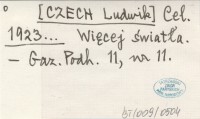 [CZECH Ludwik] Cel.
1923... Więcej światła.
— Gaz. Podh. 11, nr 11.
BJ/009/0504